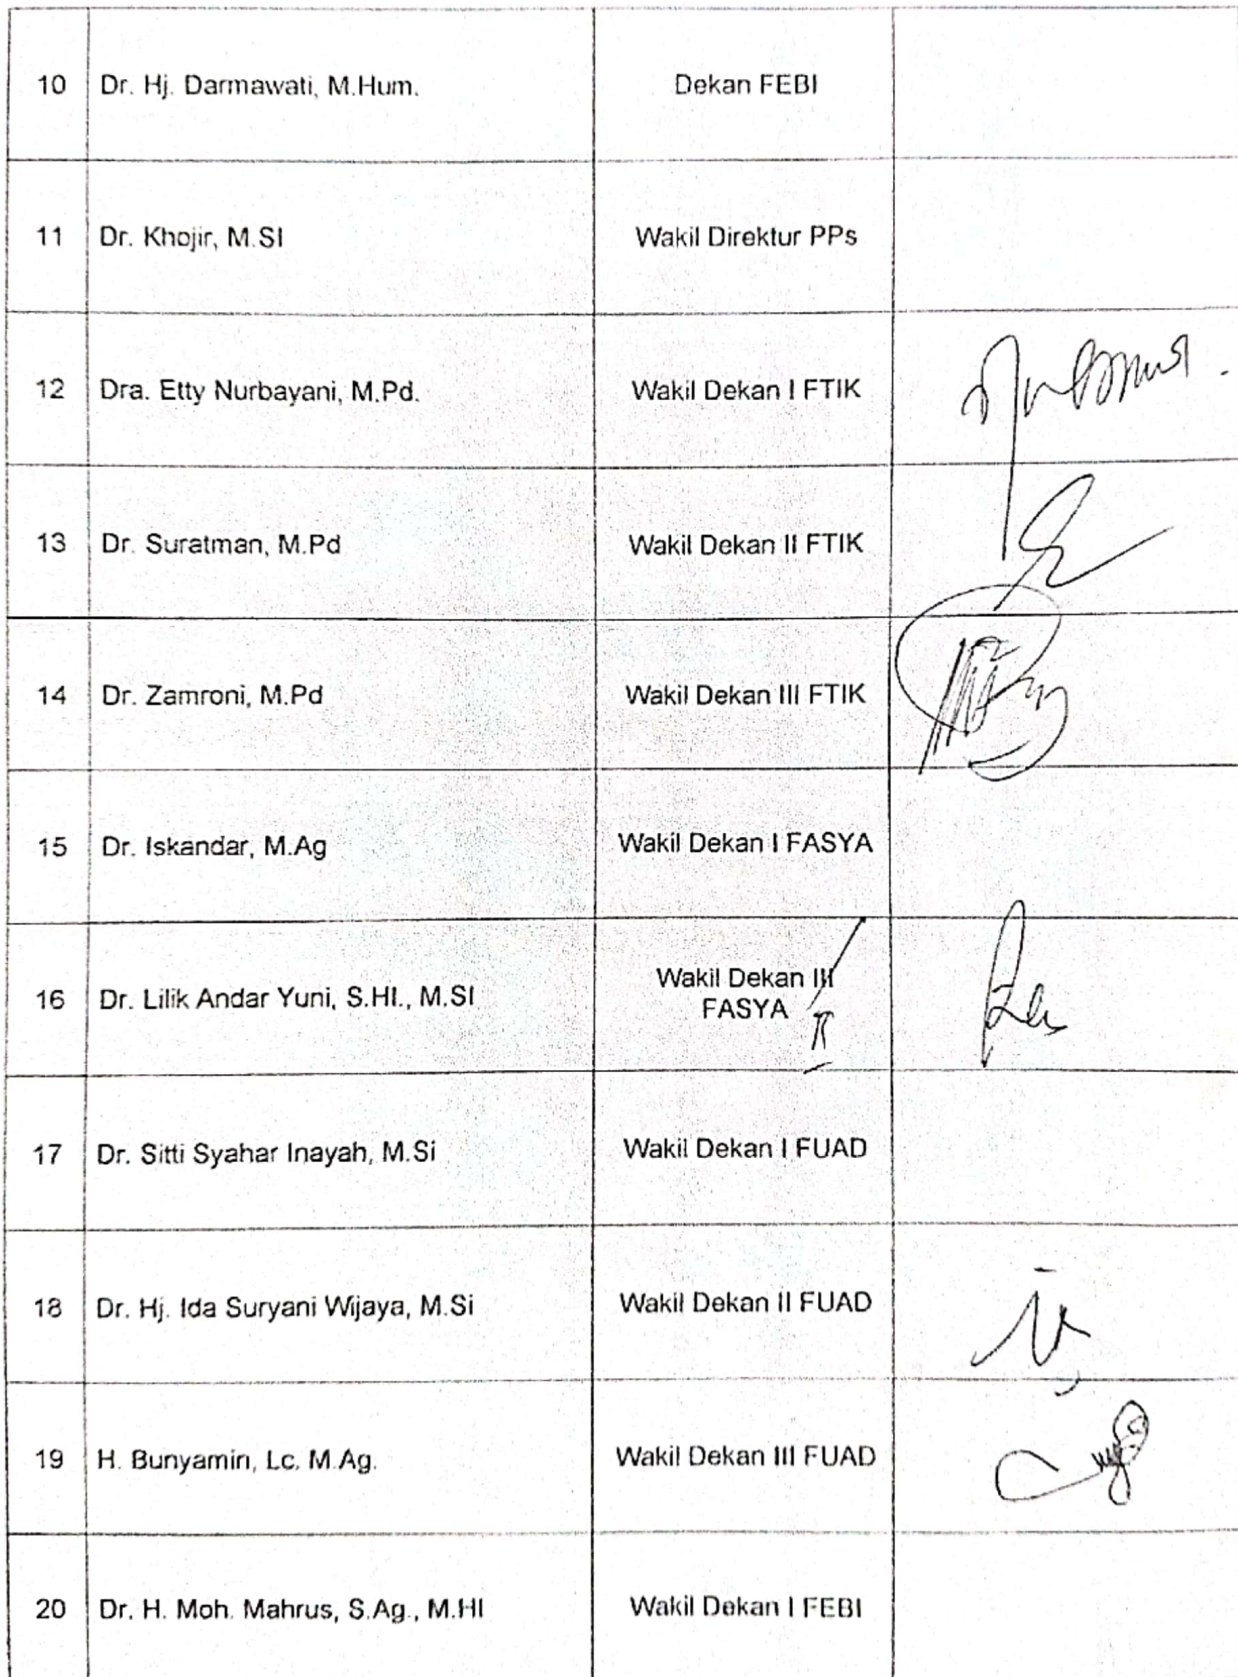 10 Dr. Hj. Darmawati, M.Hum. Dekan FEBI
11 Dr. Khojir, M.SI Wakil Direktur PPs
12 Dra. Etty Nurbayani, M.Pd. Wakil Dekan I FTIK
13 Dr. Suratman, M.Pd Wakil Dekan II FTIK
14 Dr. Zamroni, M.Pd Wakil Dekan III FTIK
15 Dr. Iskandar, M.Ag Wakil Dekan I FASYA
16 Dr. Lilik Andar Yuni, S.HI., M.SI Wakil Dekan III
FASYA
II
17 Dr. Sitti Syahar Inayah, M.Si Wakil Dekan I FUAD
18 Dr. Hj. Ida Suryani Wijaya, M.Si Wakil Dekan II FUAD
19 H. Bunyamin, Lc. M.Ag. Wakil Dekan III FUAD
20 Dr. H. Moh. Mahrus, S.Ag., M.HI Wakil Dekan I FEBI